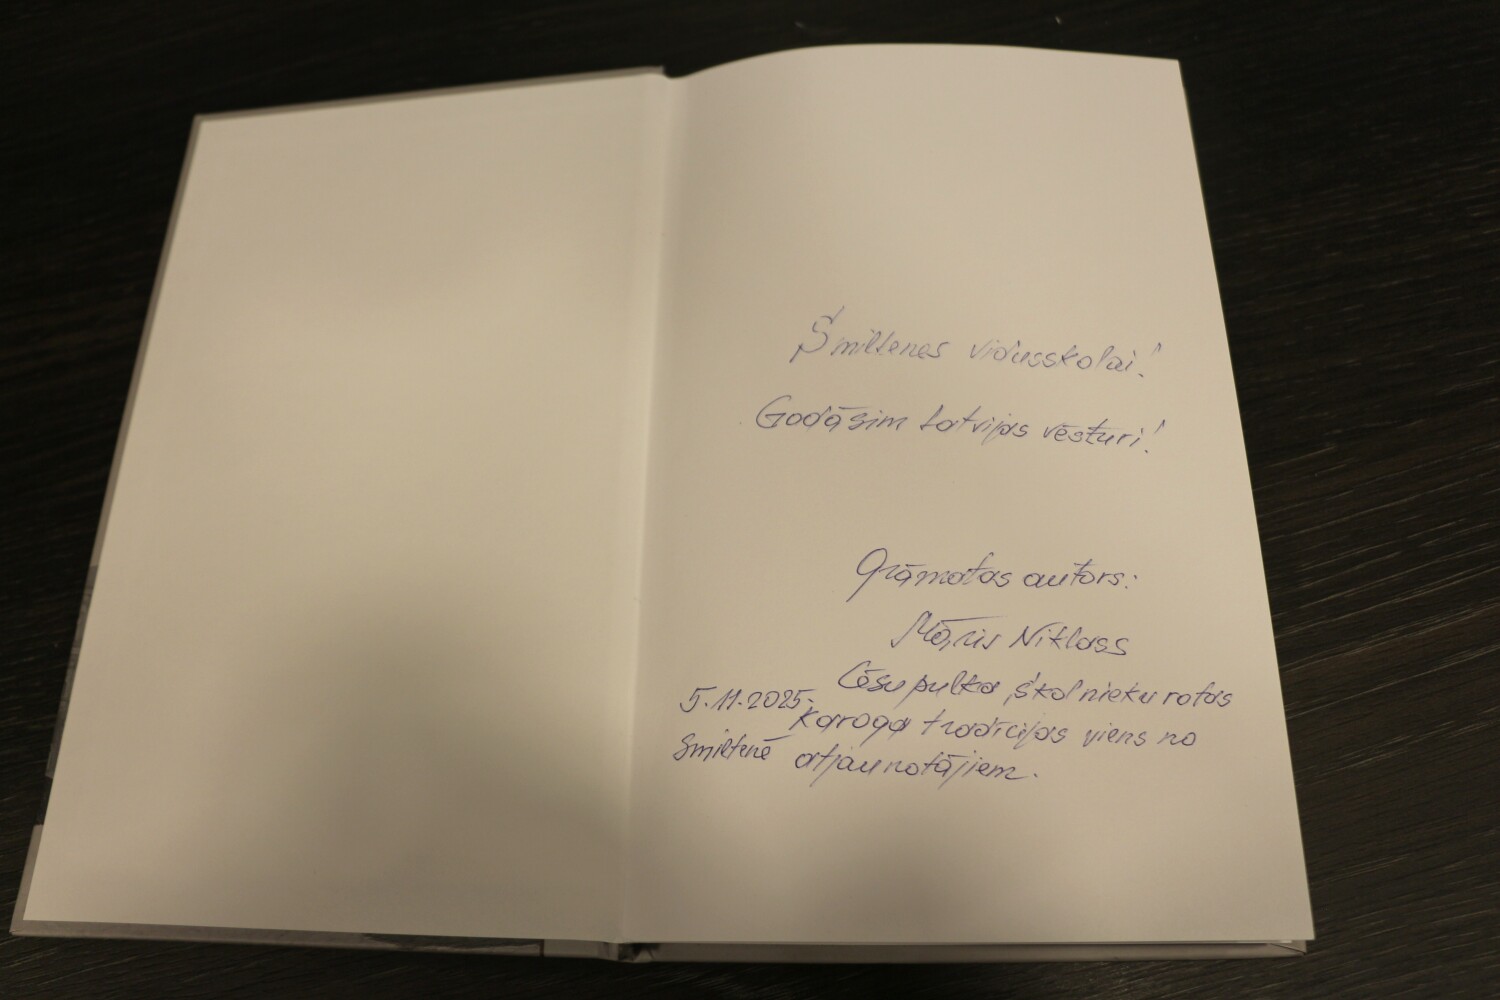 Smiltenes vidusskolai!
Godāsim Latvijas vēsturi!
Grāmatas autors:
Māris Niklass
Cēsu pulka skolnieku rotas
karoga tradīcijas viens no
atjaunotājiem.
5.11.2025.
Smiltenē